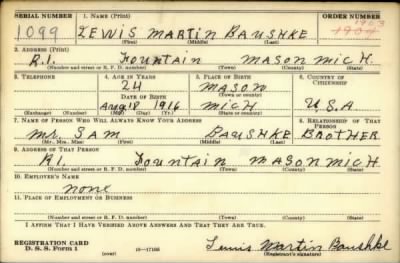 SERIAL NUMBER 1. NAME (Print) ORDER NUMBER
1099 LEWIS MARTIN BAUSHKE 1903
(First) (Middle) (Last) 1904
2. ADDRESS (Print)
R.1. Fountain MASON MICH.
(Number and street or R. F. D. number) (Town) (County) (State)
3. TELEPHONE 4. AGE IN YEARS 5. PLACE OF BIRTH 6. COUNTRY OF CITIZENSHIP
24 MASON
(Town)
DATE OF BIRTH
Aug 18 1916 MICH U.S.A
(Exchange) (Number) (Mo.) (Day) (Yr.) (State or country)
7. NAME OF PERSON WHO WILL ALWAYS KNOW YOUR ADDRESS 8. RELATIONSHIP OF THAT PERSON
Mr. SAM BAUSHKE BROTHER
(Mr., Mrs., Miss) (First) (Middle) (Last)
9. ADDRESS OF THAT PERSON
R1. Fountain MASON MICH
(Number and street or R. F. D. number) (Town) (County) (State)
10. EMPLOYER'S NAME
none
11. PLACE OF EMPLOYMENT OR BUSINESS
(Number and street or R. F. D. number) (Town) (County) (State)
I AFFIRM THAT I HAVE VERIFIED ABOVE ANSWERS AND THAT THEY ARE TRUE.
REGISTRATION CARD
D. S. S. Form 1 (over) 16-17105 Lewis Martin Baushke
(Registrant's signature)